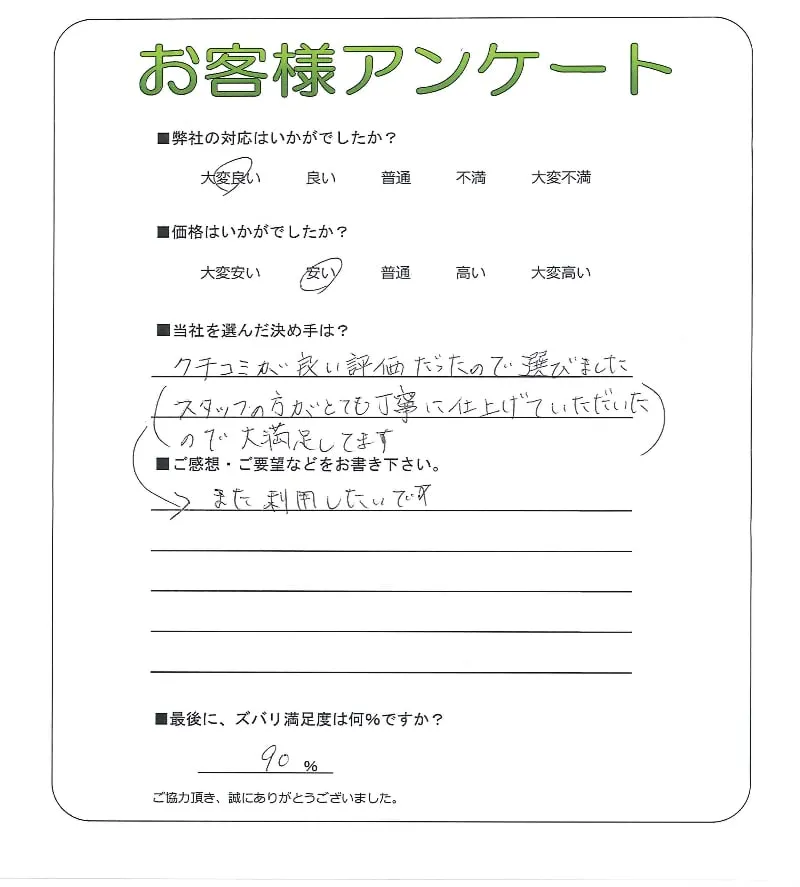 お客様アンケート
■弊社の対応はいかがでしたか？
大変良い 良い 普通 不満 大変不満
■価格はいかがでしたか？
大変安い 安い 普通 高い 大変高い
■当社を選んだ決め手は？
クチコミが良い評価だったので選びました
(スタッフの方がとても丁寧に仕上げていただいた
ので大満足してます)
■ご感想・ご要望などをお書き下さい。
また利用したいです
■最後に、ズバリ満足度は何%ですか？
90 %
ご協力頂き、誠にありがとうございました。